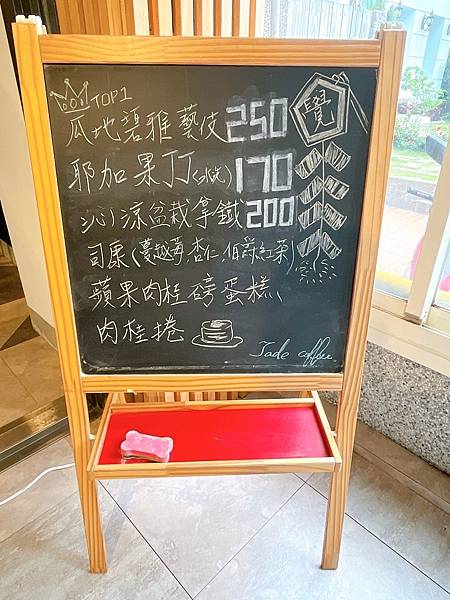 TOP1
瓜地碧雅藝伎250
覺
耶加果丁丁(水洗)170
沁涼盆栽拿鐵200
司康(蔓越莓,杏仁,伯爵紅茶)
蘋果肉桂磅蛋糕、
肉桂捲
Jade coffee